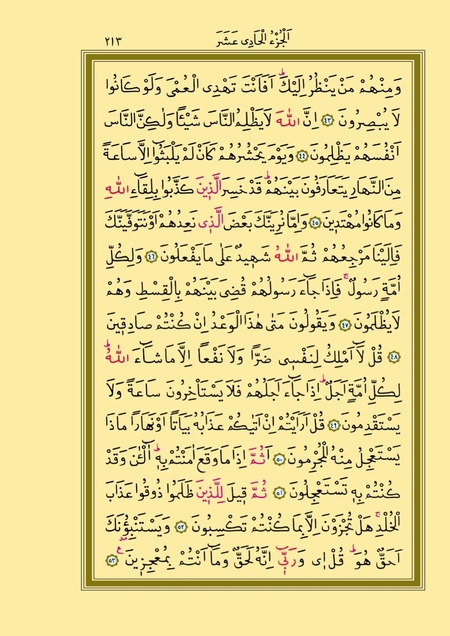 اَلْجُزْءُ الْحَادِى عَشَرَ ٢١٣
وَمِنْهُمْ مَنْ يَنْظُرُ اِلَيْكَۜ اَفَاَنْتَ تَهْدِى الْعُمْىَ وَلَوْ كَانُوا
لَا يُبْصِرُونَ ﴿٤٣﴾ اِنَّ اللّٰهَ لَا يَظْلِمُ النَّاسَ شَيْـًٔا وَلٰكِنَّ النَّاسَ
اَنْفُسَهُمْ يَظْلِمُونَ ﴿٤٤﴾ وَيَوْمَ يَحْشُرُهُمْ كَاَنْ لَمْ يَلْبَثُٓوا اِلَّا سَاعَةً
مِنَ النَّهَارِ يَتَعَارَفُونَ بَيْنَهُمْۜ قَدْ خَسِرَ الَّذٖينَ كَذَّبُوا بِلِقَٓاءِ اللّٰهِ
وَمَا كَانُوا مُهْتَدٖينَ ﴿٤٥﴾ وَاِمَّا نُرِيَنَّكَ بَعْضَ الَّذٖى نَعِدُهُمْ اَوْ نَتَوَفَّيَنَّكَ
فَاِلَيْنَا مَرْجِعُهُمْ ثُمَّ اللّٰهُ شَهٖيدٌ عَلٰى مَا يَفْعَلُونَ ﴿٤٦﴾ وَلِكُلِّ
اُمَّةٍ رَسُولٌۚ فَاِذَا جَٓاءَ رَسُولُهُمْ قُضِىَ بَيْنَهُمْ بِالْقِسْطِ وَهُمْ
لَا يُظْلَمُونَ ﴿٤٧﴾ وَيَقُولُونَ مَتٰى هٰذَا الْوَعْدُ اِنْ كُنْتُمْ صَادِقٖينَ
﴿٤٨﴾ قُلْ لَٓا اَمْلِكُ لِنَفْسٖى ضَرًّا وَلَا نَفْعًا اِلَّا مَا شَٓاءَ اللّٰهُۜ
لِكُلِّ اُمَّةٍ اَجَلٌۜ اِذَا جَٓاءَ اَجَلُهُمْ فَلَا يَسْتَاْخِرُونَ سَاعَةً وَلَا
يَسْتَقْدِمُونَ ﴿٤٩﴾ قُلْ اَرَاَيْتُمْ اِنْ اَتٰيكُمْ عَذَابُهُ بَيَاتًا اَوْ نَهَارًا مَاذَا
يَسْتَعْجِلُ مِنْهُ الْمُجْرِمُونَ ﴿٥٠﴾ اَثُمَّ اِذَا مَا وَقَعَ اٰمَنْتُمْ بِهٖۜ آٰلْـٰٔنَ وَقَدْ
كُنْتُمْ بِهٖ تَسْتَعْجِلُونَ ﴿٥١﴾ ثُمَّ قٖيلَ لِلَّذٖينَ ظَلَمُوا ذُوقُوا عَذَابَ
الْخُلْدِۚ هَلْ تُجْزَوْنَ اِلَّا بِمَا كُنْتُمْ تَكْسِبُونَ ﴿٥٢﴾ وَيَسْتَنْبِؤُ۫نَكَ
اَحَقٌّ هُوَۜ قُلْ اٖى وَرَبّٖٓى اِنَّهُ لَحَقٌّۚ وَمَٓا اَنْتُمْ بِمُعْجِزٖينَ ﴿٥٣﴾